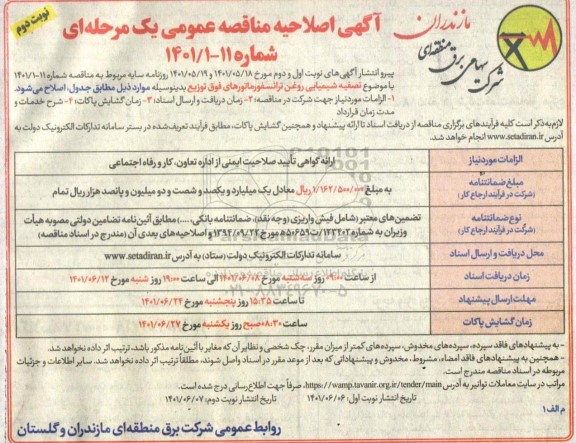 نوبت دوم
آگهی اصلاحیه مناقصه عمومی یک مرحله‌ای
شماره ۱۱-۱۴۰۱/۱
مازندران
شرکت سهامی برق منطقه‌ای
پیرو انتشار آگهی‌های نوبت اول و دوم مورخ ۱۴۰۱/۰۵/۱۸ و ۱۴۰۱/۰۵/۱۹ روزنامه سایه مربوط به مناقصه شماره ۱۱-۱۴۰۱/۱
با موضوع تصفیه شیمیایی روغن ترانسفورماتورهای فوق توزیع بدینوسیله موارد ذیل مطابق جدول، اصلاح می‌شود.
۱- الزامات موردنیاز جهت شرکت در مناقصه؛ ۲- زمان دریافت و ارسال اسناد؛ ۳- زمان گشایش پاکات؛ ۴- شرح خدمات و
مدت زمان قرارداد
لازم به ذکر است کلیه فرآیندهای برگزاری مناقصه از دریافت اسناد تا ارائه پیشنهاد و همچنین گشایش پاکات، مطابق فرآیند تعریف‌شده در بستر سامانه تدارکات الکترونیک دولت به
آدرس www.setadiran.ir انجام خواهد شد.
الزامات موردنیاز
ارائه گواهی تأیید صلاحیت ایمنی از اداره تعاون، کار و رفاه اجتماعی
مبلغ ضمانتنامه
(شرکت در فرآیند ارجاع کار)
به مبلغ ۱/۱۶۲/۵۰۰/۰۰۰ ریال معادل یک میلیارد و یکصد و شصت و دو میلیون و پانصد هزار ریال تمام
نوع ضمانتنامه
(شرکت در فرآیند ارجاع کار)
تضمین‌های معتبر (شامل فیش واریزی (وجه نقد)، ضمانتنامه بانکی، ....) مطابق آئین‌نامه تضامین دولتی مصوبه هیأت
وزیران به شماره ۱۲۳۴۰۲/ت۵۰۶۵۹ه مورخ ۱۳۹۴/۰۹/۲۲ و اصلاحیه‌های بعدی آن (مندرج در اسناد مناقصه)
محل دریافت و ارسال اسناد
سامانه تدارکات الکترونیک دولت (ستاد) به آدرس www.setadiran.ir
زمان دریافت اسناد
از ساعت ۰۹:۰۰ روز سه‌شنبه مورخ ۱۴۰۱/۰۶/۰۸ الی ساعت ۱۹:۰۰ روز شنبه مورخ ۱۴۰۱/۰۶/۱۲
مهلت ارسال پیشنهاد
تا ساعت ۱۵:۳۵ روز پنجشنبه مورخ ۱۴۰۱/۰۶/۲۴
زمان گشایش پاکات
ساعت ۰۸:۳۰ صبح روز یکشنبه مورخ ۱۴۰۱/۰۶/۲۷
- به پیشنهادهای فاقد سپرده، سپرده‌های مخدوش، سپرده‌های کمتر از میزان مقرر، چک شخصی و نظایر آن که مغایر با آئین‌نامه مذکور باشد، ترتیب اثر داده نخواهد شد.
- همچنین به پیشنهادهای فاقد امضاء، مشروط، مخدوش و پیشنهاداتی که بعد از موعد مقرر در اسناد واصل شوند، مطلقاً ترتیب اثر داده نخواهد شد. سایر اطلاعات و جزئیات
مربوطه در اسناد مناقصه مندرج است.
مراتب در سایت معاملات توانیر به آدرس https://wamp.tavanir.org.ir/tender/main، صرفاً جهت اطلاع‌رسانی درج شده است.
تاریخ انتشار نوبت اول: ۱۴۰۱/۰۶/۰۶ تاریخ انتشار نوبت دوم: ۱۴۰۱/۰۶/۰۷
م الف ۱
روابط عمومی شرکت برق منطقه‌ای مازندران و گلستان